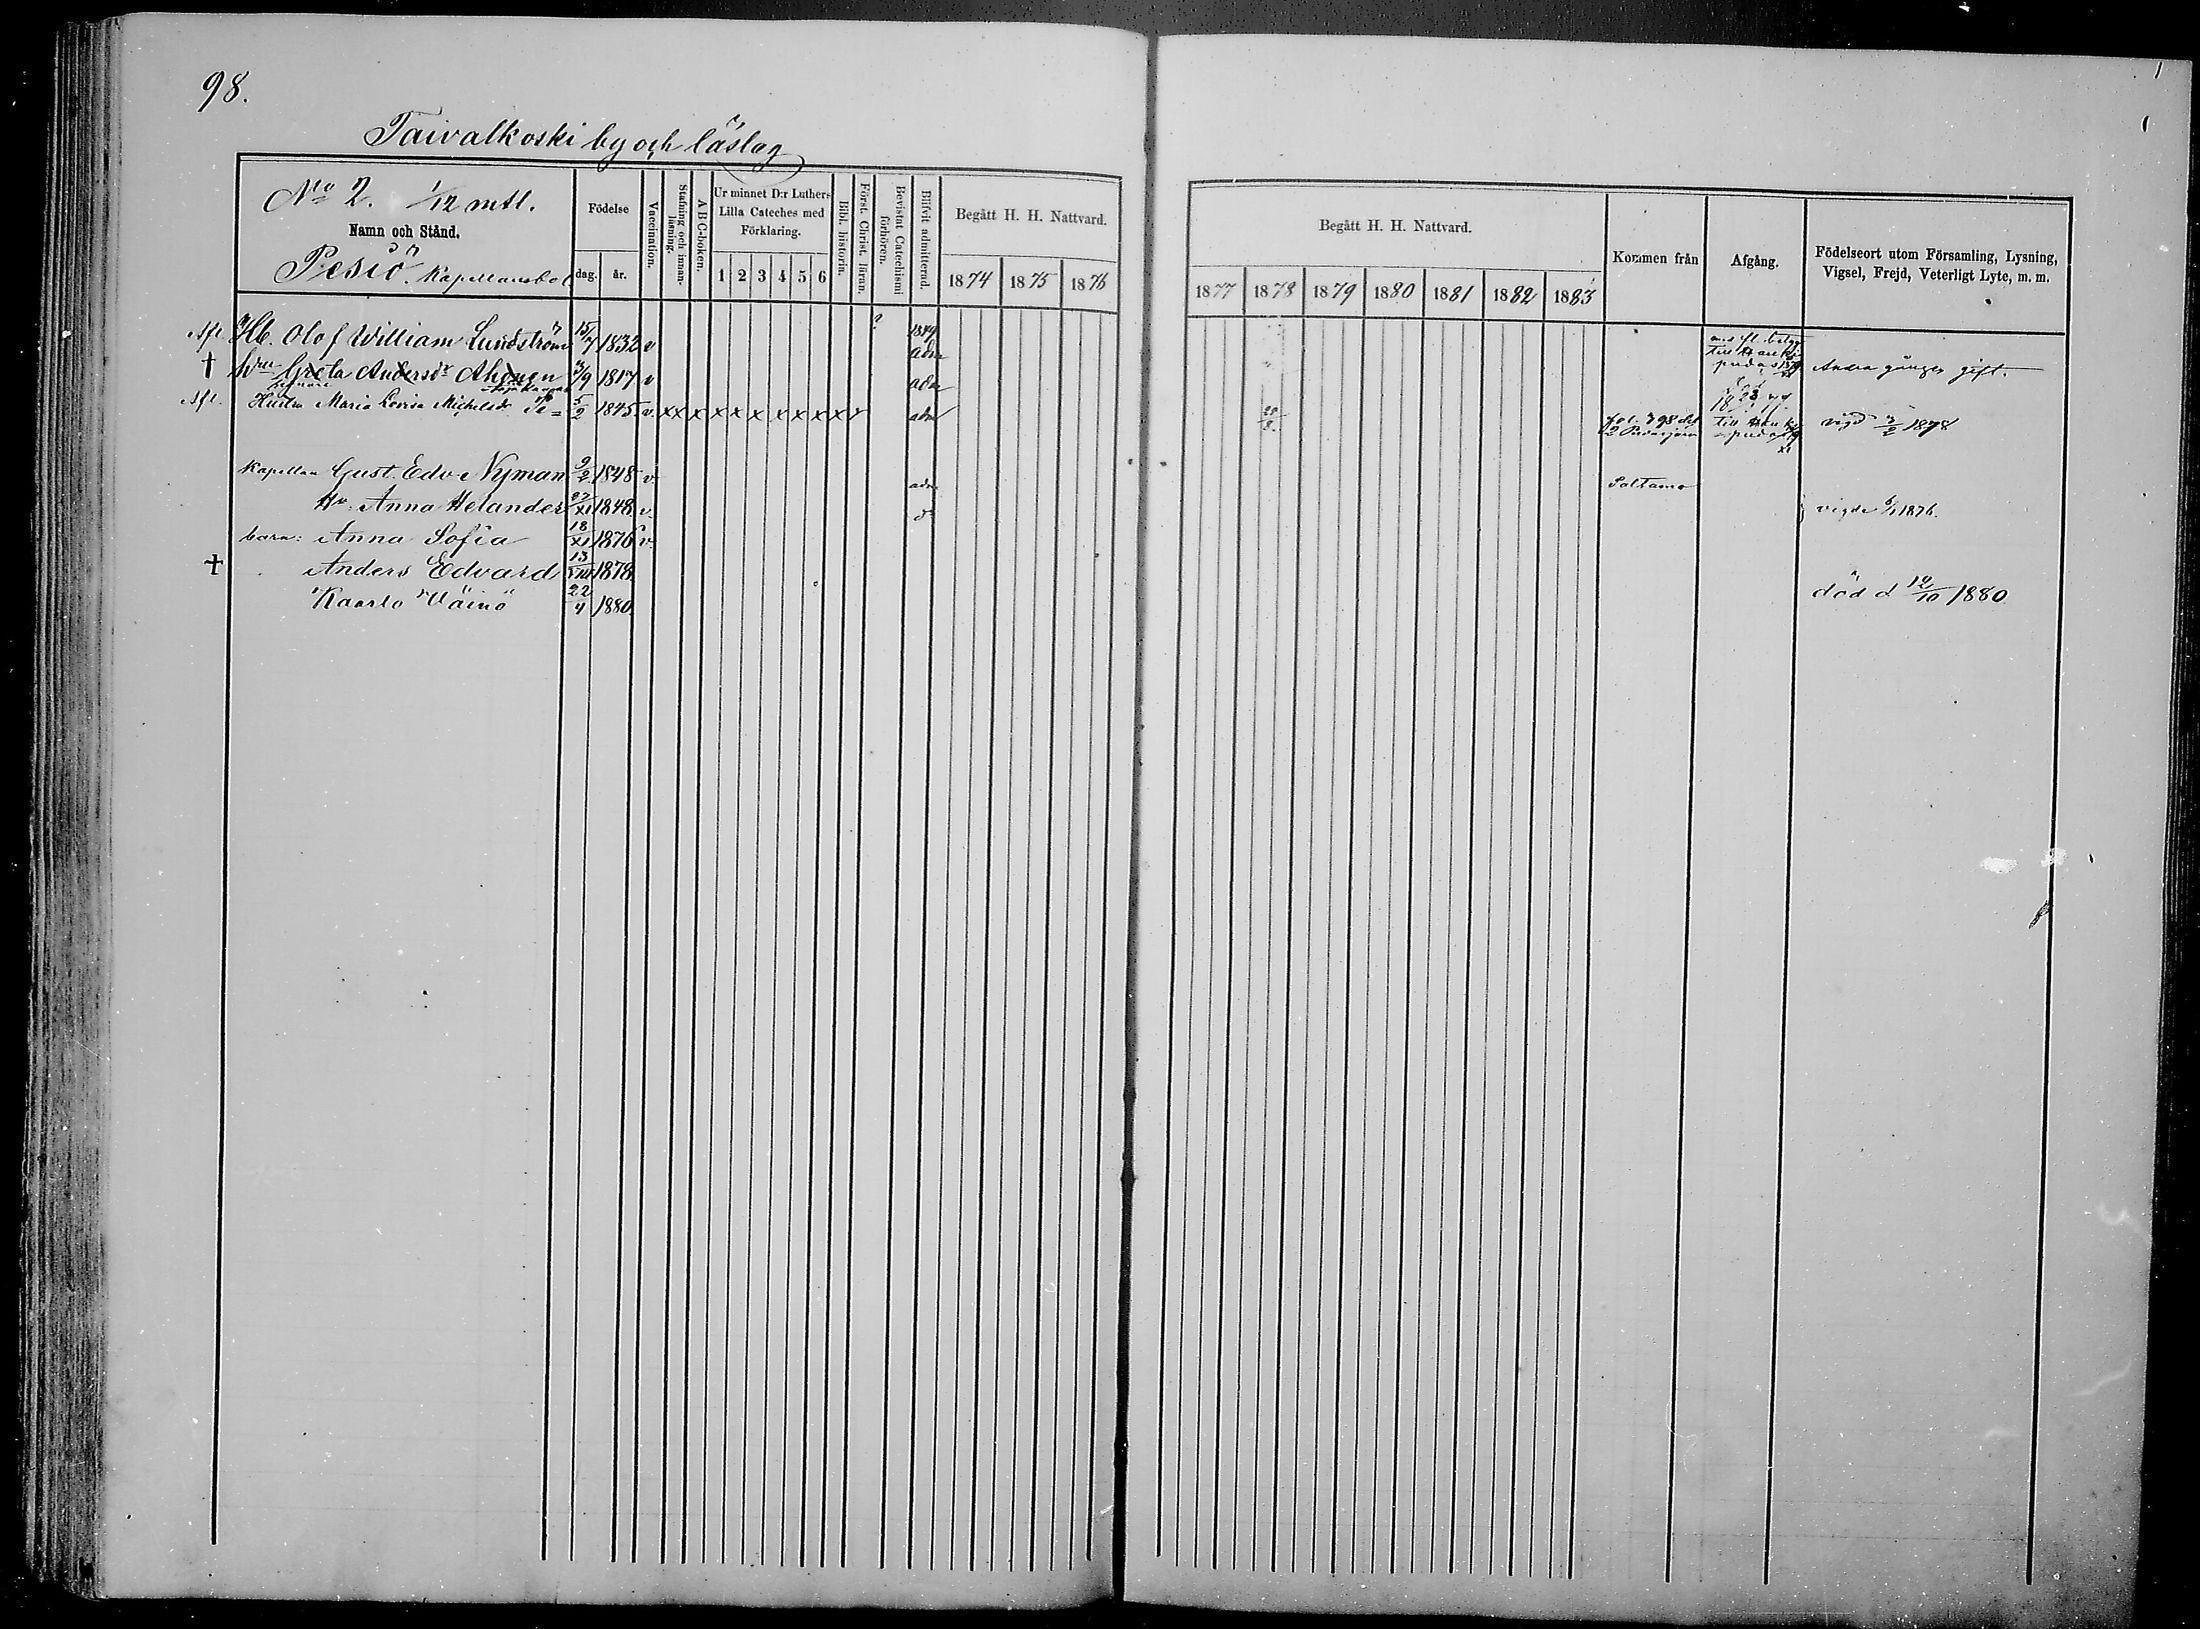 98.
Taivalkoski by och läslag
No 2. 1/12 mtl.
Namn och Stånd.
Pesiö. Kapellansbol
Födelse
dag. år.
Vaccination.
Stafning och innan-läsning.
A B C-boken.
Ur minnet D:r Luthers
Lilla Cateches med
Förklaring.
1 2 3 4 5 6
Bibl. historin.
Först. Christ. läran.
Bevistat Catechismi förhören.
Blifvit admitterad.
Begått H. H. Nattvard.
1874 1875 1876
Begått H. H. Nattvard.
1877 1878 1879 1880 1881 1882 1883
Kommen från
Afgång.
Födelseort utom Församling, Lysning,
Vigsel, Frejd, Veterligt Lyte, m. m.
Afl. Hb. Olof William Lundström 15/7 1832 v 1849 adm
till Hauki-
pudas
† Greta Andersdr Ahonen 3/9 1817 v adm Andra gången gift.
Afl. Hustru Maria Lovisa Michelsdr 5/2 1845 v x x x x x x x x x x adm 20/8 fol. 398 Pudasjärvi till Hauki-pudas vigd 3/2 1878
Kapellan Gust. Edv. Nyman 9/2 1848 v adm Paltamo
Hu Anna Helander 27/XI 1848 v d:o vigde 6/1 1876.
barn: Anna Sofia 18/XI 1876 v.
† Anders Edvard 13/VIII 1878 död d 12/10 1880
Kaarlo Väinö 22/4 1880